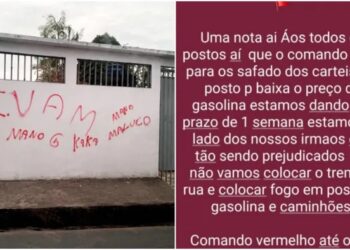 IVAM
MANO G KAKA
MANO
MALUCO
Uma nota ai Áos todos
postos aí que o comando
para os safado dos cartei
posto p baixa o preço
gasolina estamos dando
prazo de 1 semana estamo
lado dos nossos irmaos
tão sendo prejudicados
não vamos colocar o trem
rua e colocar fogo em pos
gasolina e caminhões
Comando vermelho até o